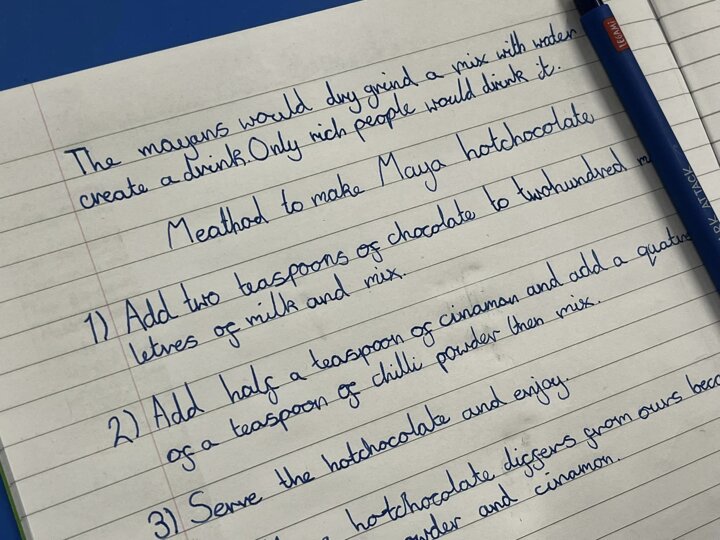 The mayans would dry grind a mix with water
create a drink. Only rich people would drink it.
Meathad to make Maya hotchocolate
1) Add two teaspoons of chocolate to twohundred
letres of milk and mix.
2) Add half a teaspoon of cinamon and add a
of a teaspoon of chilli powder then mix.
3) Serve the hotchocolate and enjoy.
hotchocolate differs from ours
and cinamon.
LEGAMI
ATTACK